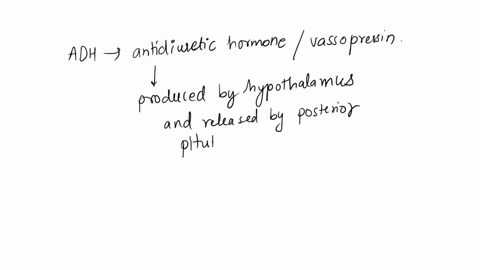 ADH → antidiuretic hormone / vassopressin.
↓
produced by hypothalamus
and released by posterior
pItuI